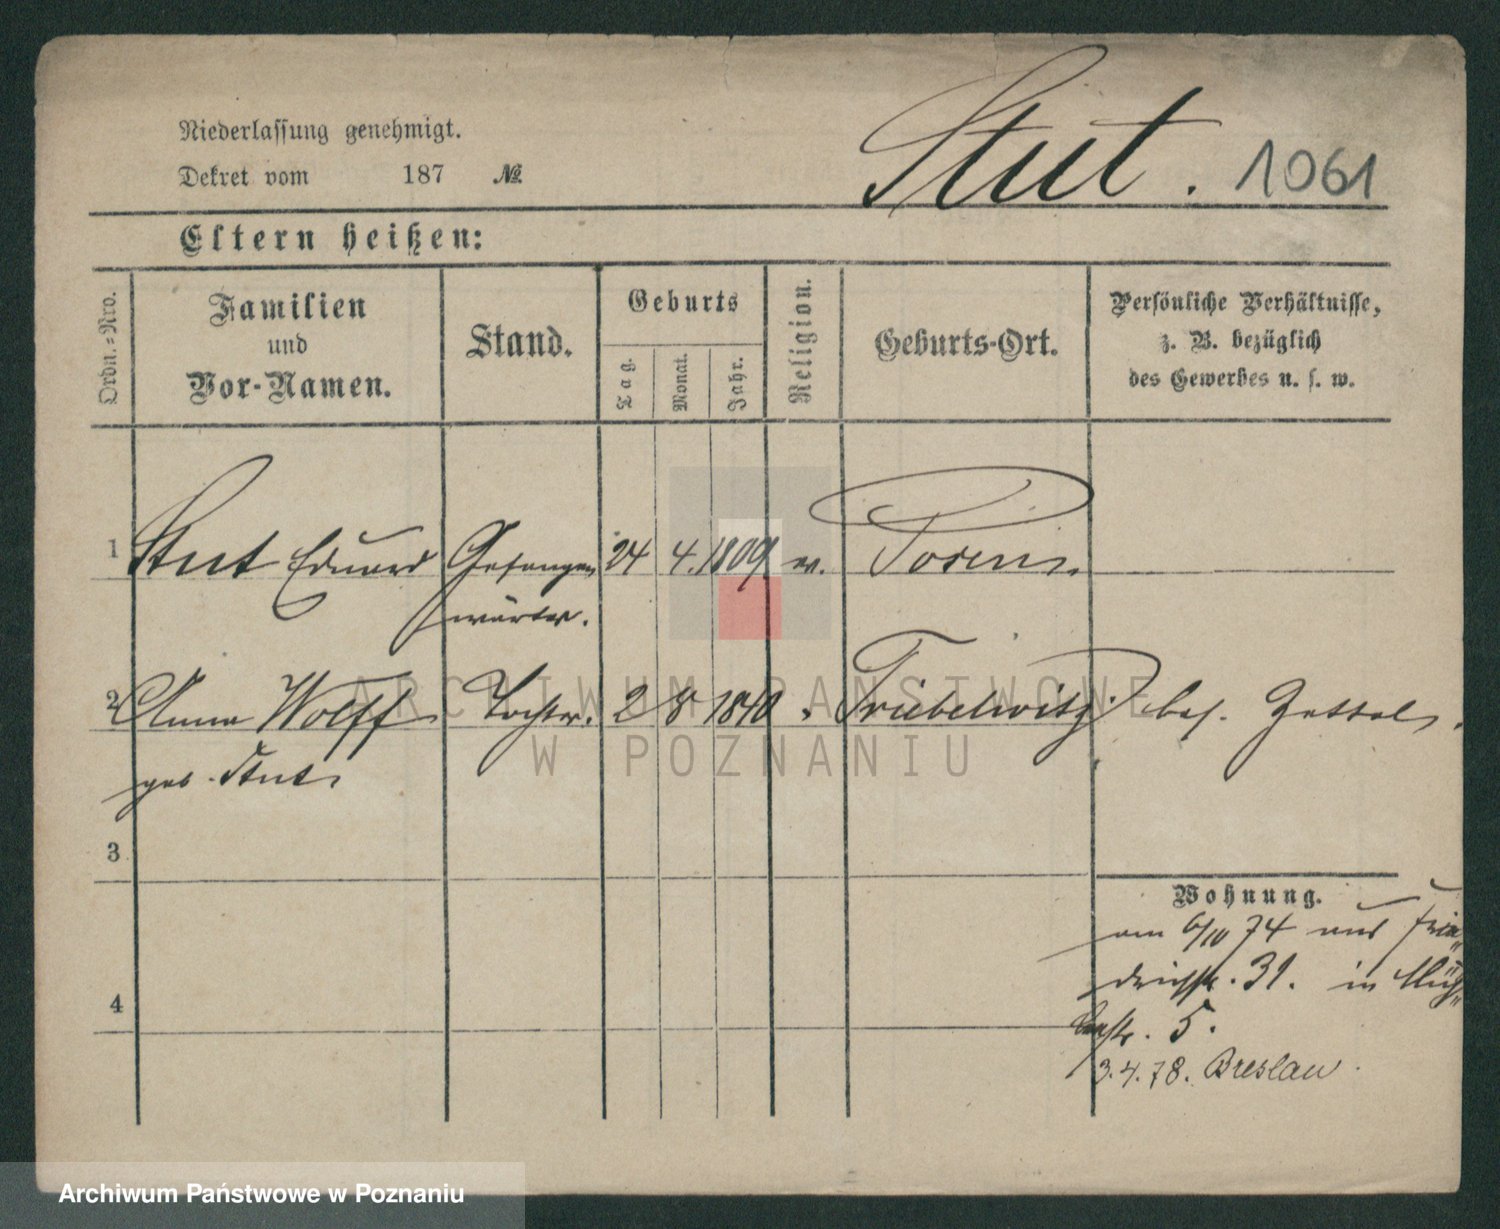 Niederlassung genehmigt.
Stut. 1061
Dekret vom 187 №
Eltern heißen:
Ordn.-Nro.
Familien und Vor-Namen.
Stand.
Geburts
Tag.
Monat.
Jahr.
Religion.
Geburts-Ort.
Persönliche Verhältnisse,
z. B. bezüglich
des Gewerbes u. s. w.
1 Stut Eduard Gefangen 24 4. 1809 ev.
wärter.
2 Anna Wolff Tochter. 2 8 1840 Triebelwitz bei
geb. Stut
3
Wohnung.
am 6/10 74 aus Frie
drichstr. 31. in Müh
lenstr. 5.
4
3.4.78. Breslau.
ARCHIWUM PAŃSTWOWE
W POZNANIU
Archiwum Państwowe w Poznaniu